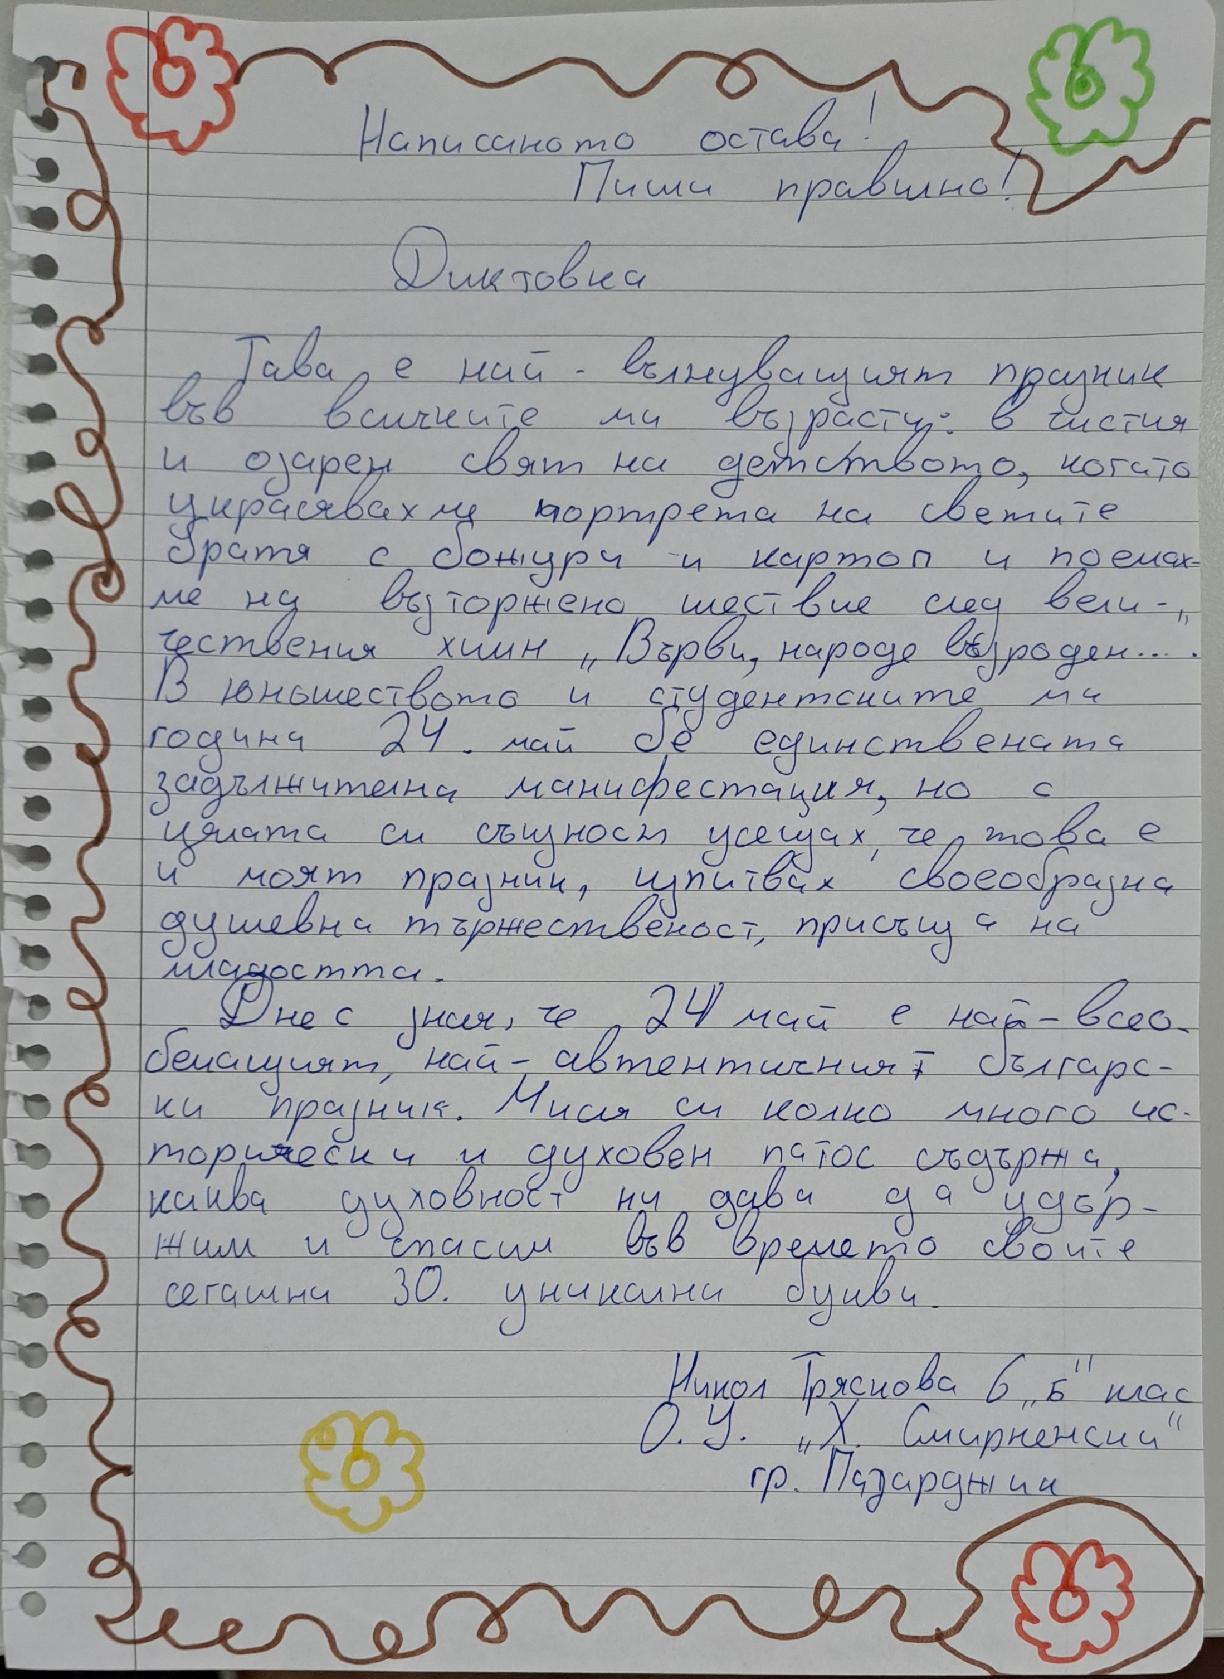 Написаното остава!
Пиши правилно!
Диктовка
Това е най - вълнуващият празник
във всичките ми възрасти: в чистия
и озарен свят на детството, когато
украсявахме портрета на светите
братя с божури и картоп и поемах-
ме на възторжено шествие след вели-
чествения химн „Върви, народе възроден...."
В юношеството и студентските ми
години 24. май бе единствената
задължителна манифестация, но с
цялата си същност усещах, че това е
и моят празник, изпитвах своеобразна
душевна тържественост, присъща на
младостта.
Днес зная, че 24 май е най-всео-
бемащият, най-автентичният българс-
ки празник. Мисля си колко много ис-
торически и духовен патос съдържа,
каква духовност ни дава да удър-
жим и спасим във времето своите
сегашни 30. уникални букви.
Никол Тряскова 6 „Б" клас
О. У. „Х. Смирненски"
гр. Пазарджик